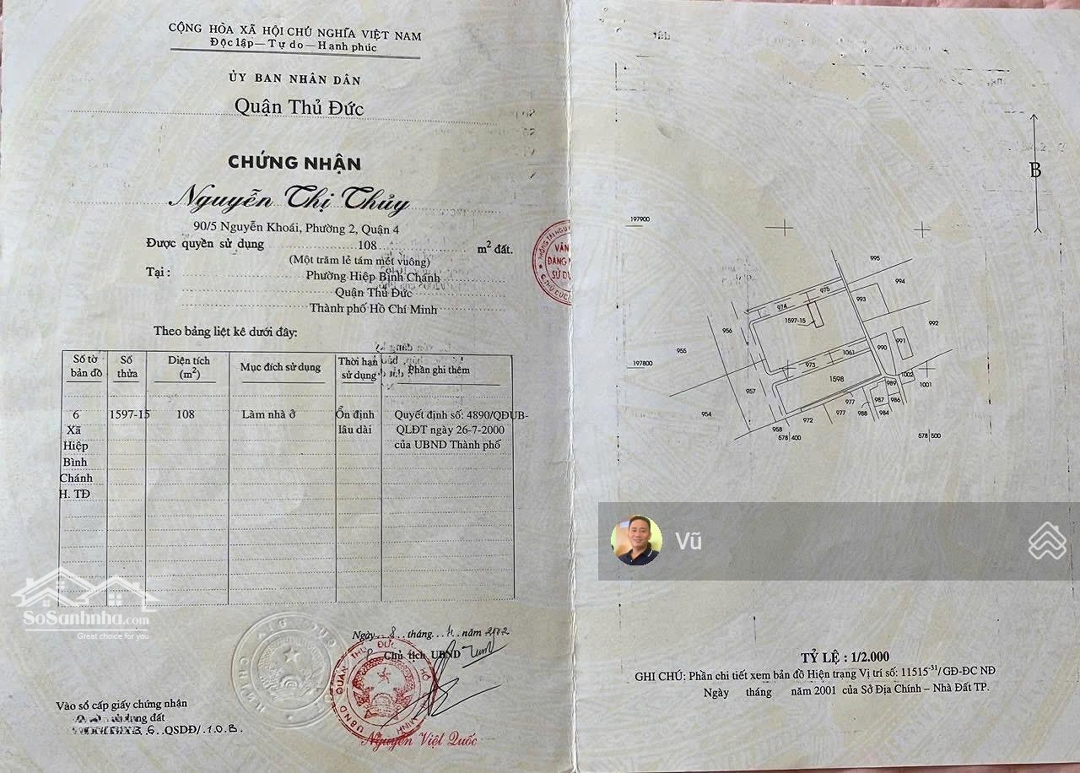 CỘNG HÒA XÃ HỘI CHỦ NGHĨA VIỆT NAM
Độc lập — Tự do — Hạnh phúc
ỦY BAN NHÂN DÂN
Quận Thủ Đức
CHỨNG NHẬN
Nguyễn Thị Thủy
90/5 Nguyễn Khoái, Phường 2, Quận 4
Được quyền sử dụng 108 m² đất.
(Một trăm lẻ tám mét vuông)
Tại : Phường Hiệp Bình Chánh
Quận Thủ Đức
Thành phố Hồ Chí Minh
Theo bảng liệt kê dưới đây:
Số tờ bản đồ
Số thửa
Diện tích (m²)
Mục đích sử dụng
Thời hạn sử dụng
Phần ghi thêm
6 1597-15 108 Làm nhà ở Ổn định Quyết định số: 4890/QĐUB-
Xã lâu dài QLĐT ngày 26-7-2000
Hiệp của UBND Thành phố
Bình
Chánh
H. TĐ
SoSanhnha.com
Great choice for you
Ngày 8 tháng năm 2002
Chủ tịch UBND
UBND QUẬN THỦ ĐỨC
Nguyễn Việt Quốc
Vào sổ cấp giấy chứng nhận
QSDĐ/.1.0.8.
B
197900
995
994
975
974
993
1597-15
956
992
955
991
990
1061
973
197800
1598
1002
1001
989
957
987
986
977
977
988
984
954
972
958
578 400
578 500
Vũ
TỶ LỆ : 1/2.000
GHI CHÚ: Phần chi tiết xem bản đồ Hiện trạng Vị trí số: 11515-31/ GĐ-ĐC NĐ
Ngày tháng năm 2001 của Sở Địa Chính - Nhà Đất TP.